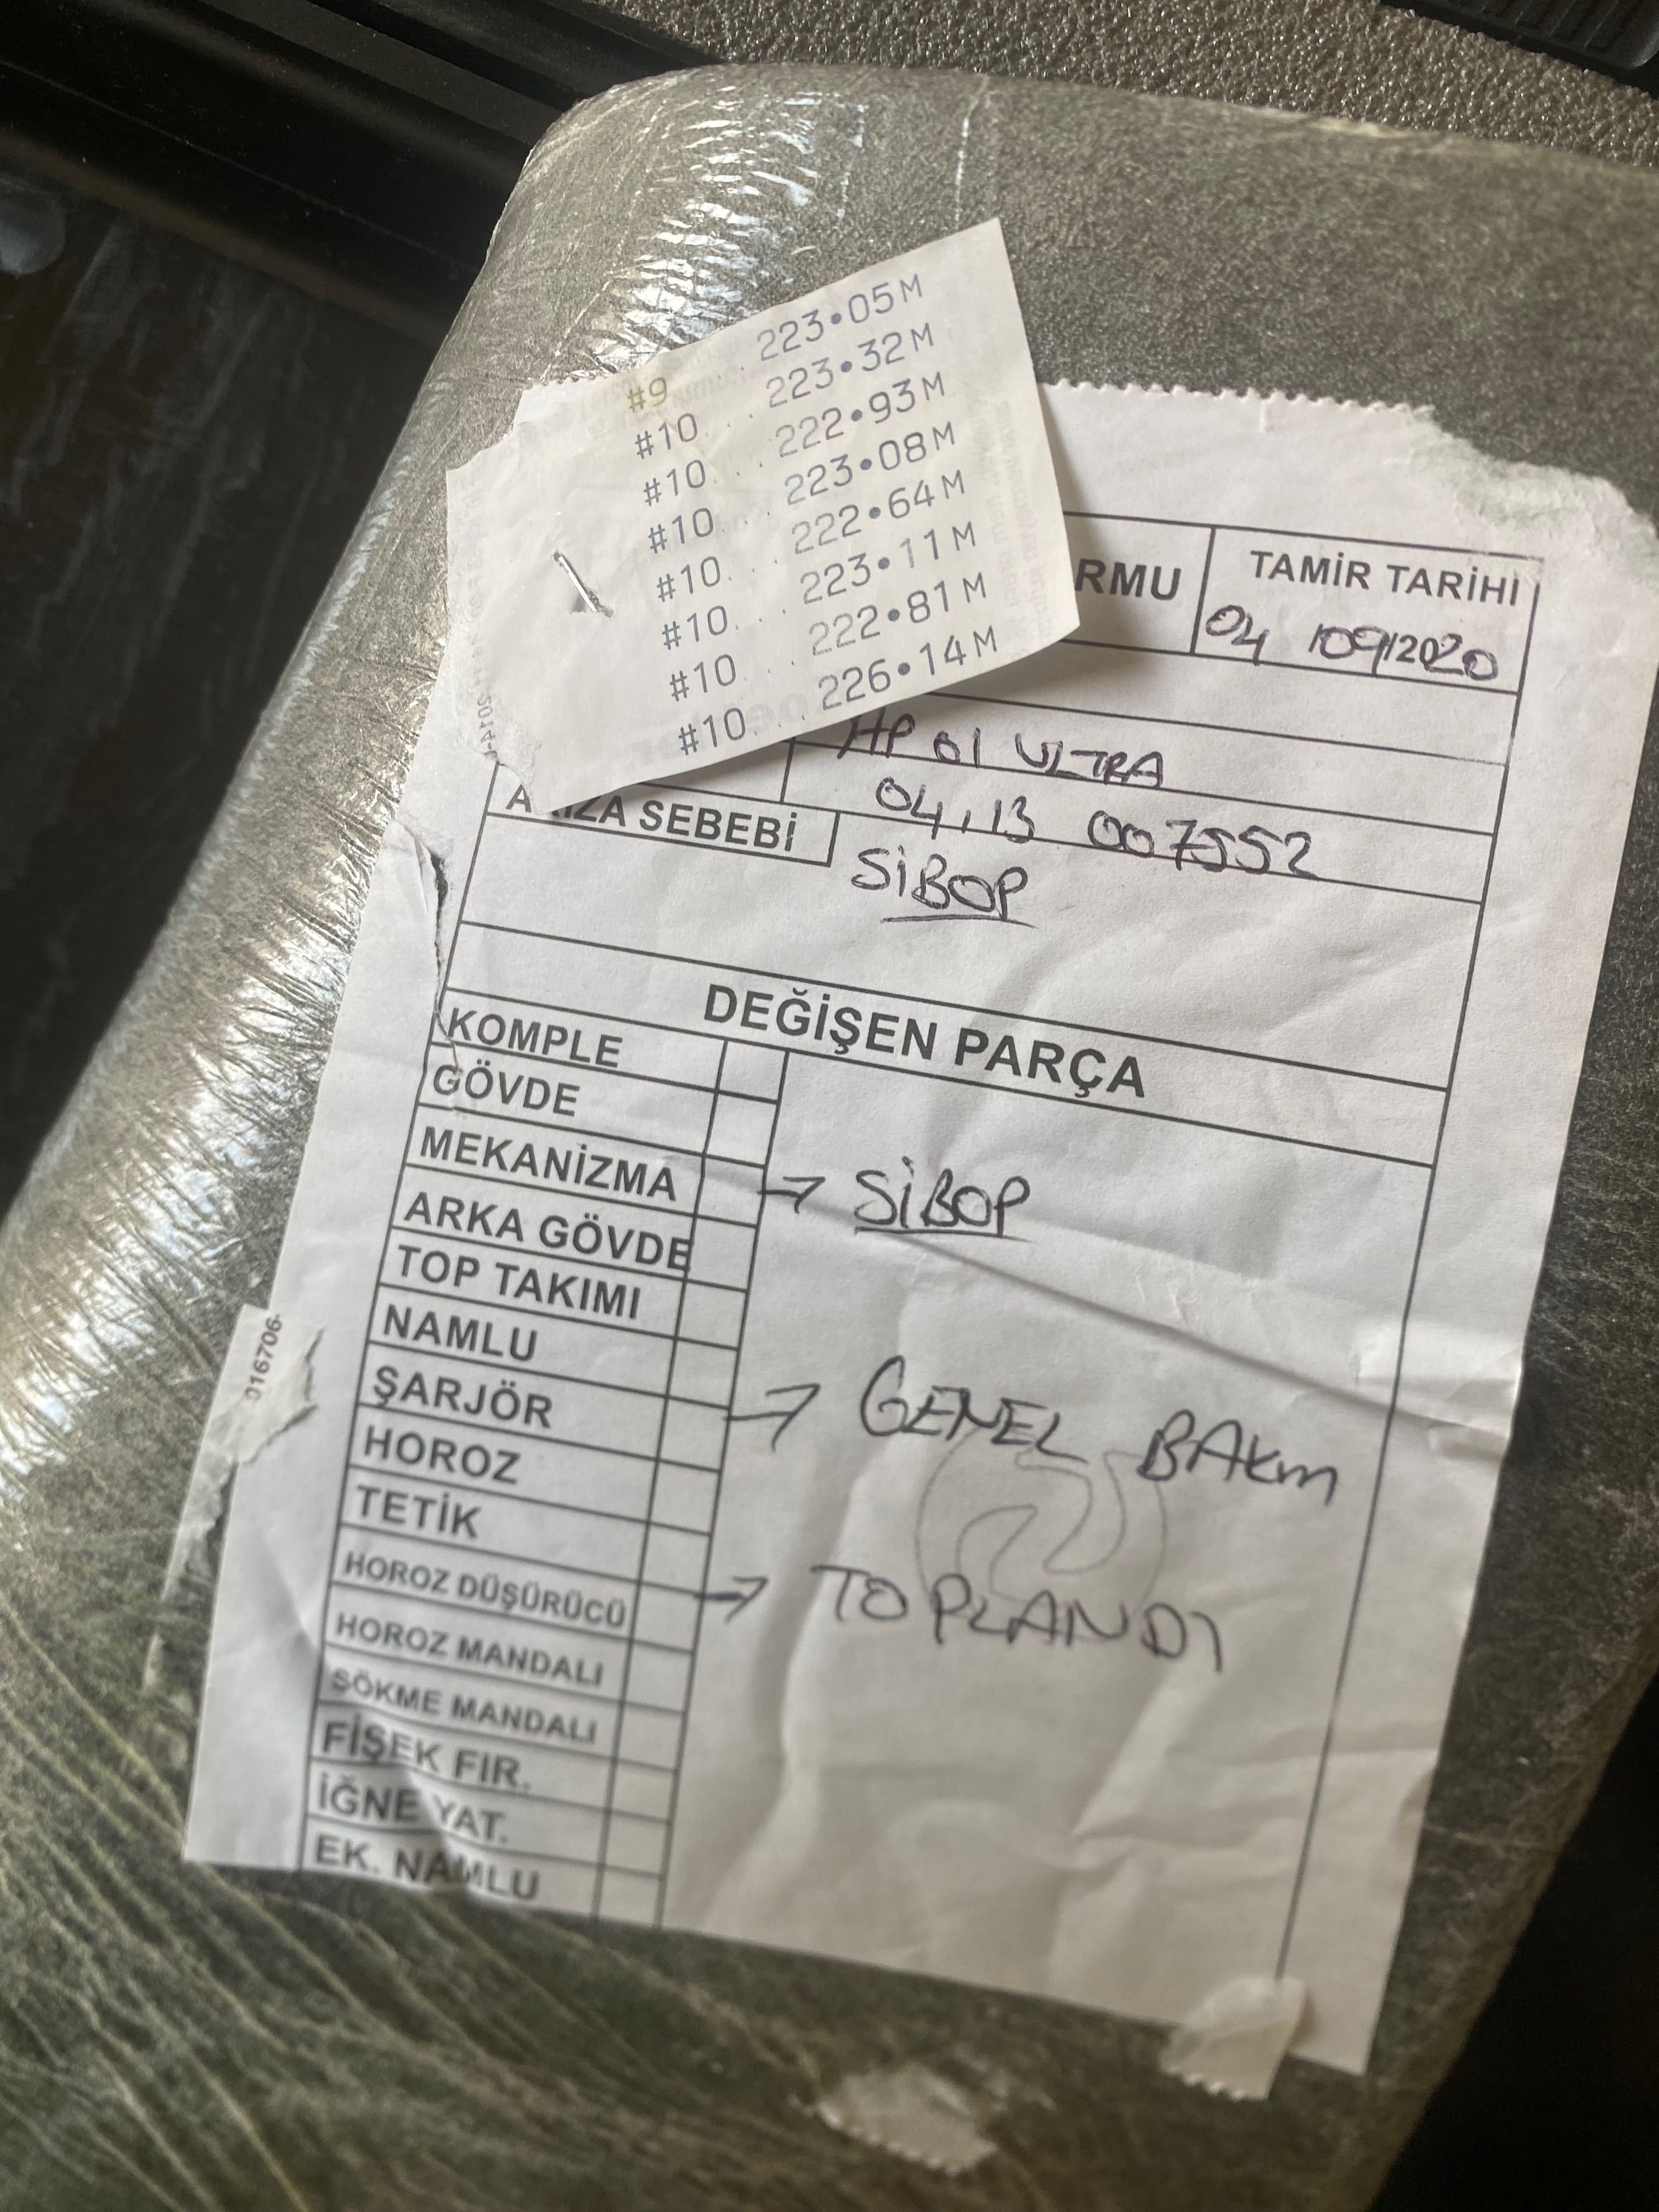 #9 . . 223•05M
#10 . . 223•32M
#10 . . 222•93M
#10 . . 223•08M
#10 . . 222•64M
#10 . . 223•11M
#10 . . 222•81M
#10 . . 226•14M
RMU
TAMİR TARİHİ
04 /09/2020
HP 01 ULTRA
04.13 007552
SEBEBİ
SİBOP
DEĞİŞEN PARÇA
KOMPLE
GÖVDE
MEKANİZMA
→ SİBOP
ARKA GÖVDE
TOP TAKIMI
NAMLU
ŞARJÖR
→ GENEL BAKIM
HOROZ
TETİK
HOROZ DÜŞÜRÜCÜ
→ TOPLANDI
HOROZ MANDALI
SÖKME MANDALI
FİŞEK FIR.
İĞNE YAT.
EK. NAMLU
016706-